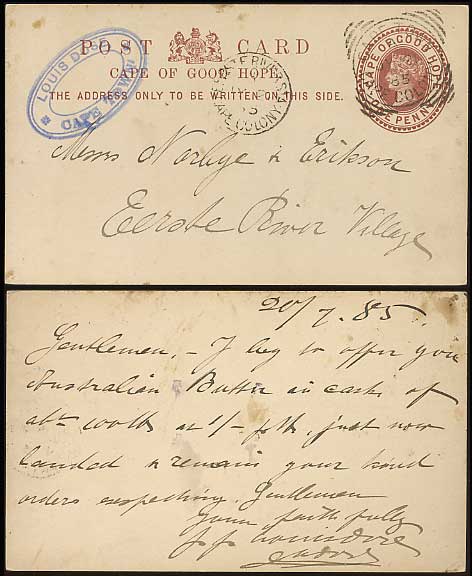 POST CARD
CAPE OF GOOD HOPE.
THE ADDRESS ONLY TO BE WRITTEN ON THIS SIDE.
LOUIS
CAPE
CAPE COLONY
CAPE OF GOOD HOPE
ONE PENNY
85
COL
Messrs Norbye & Erikson
Eerste River Village
20/7.85.
Gentlemen, - I beg to offer you
Australian Butter in casks of
abt 100 lb at 1/- p lb, just now
landed & remain your kind
orders expecting, Gentlemen
Yours faithfully
pp Louis Doré